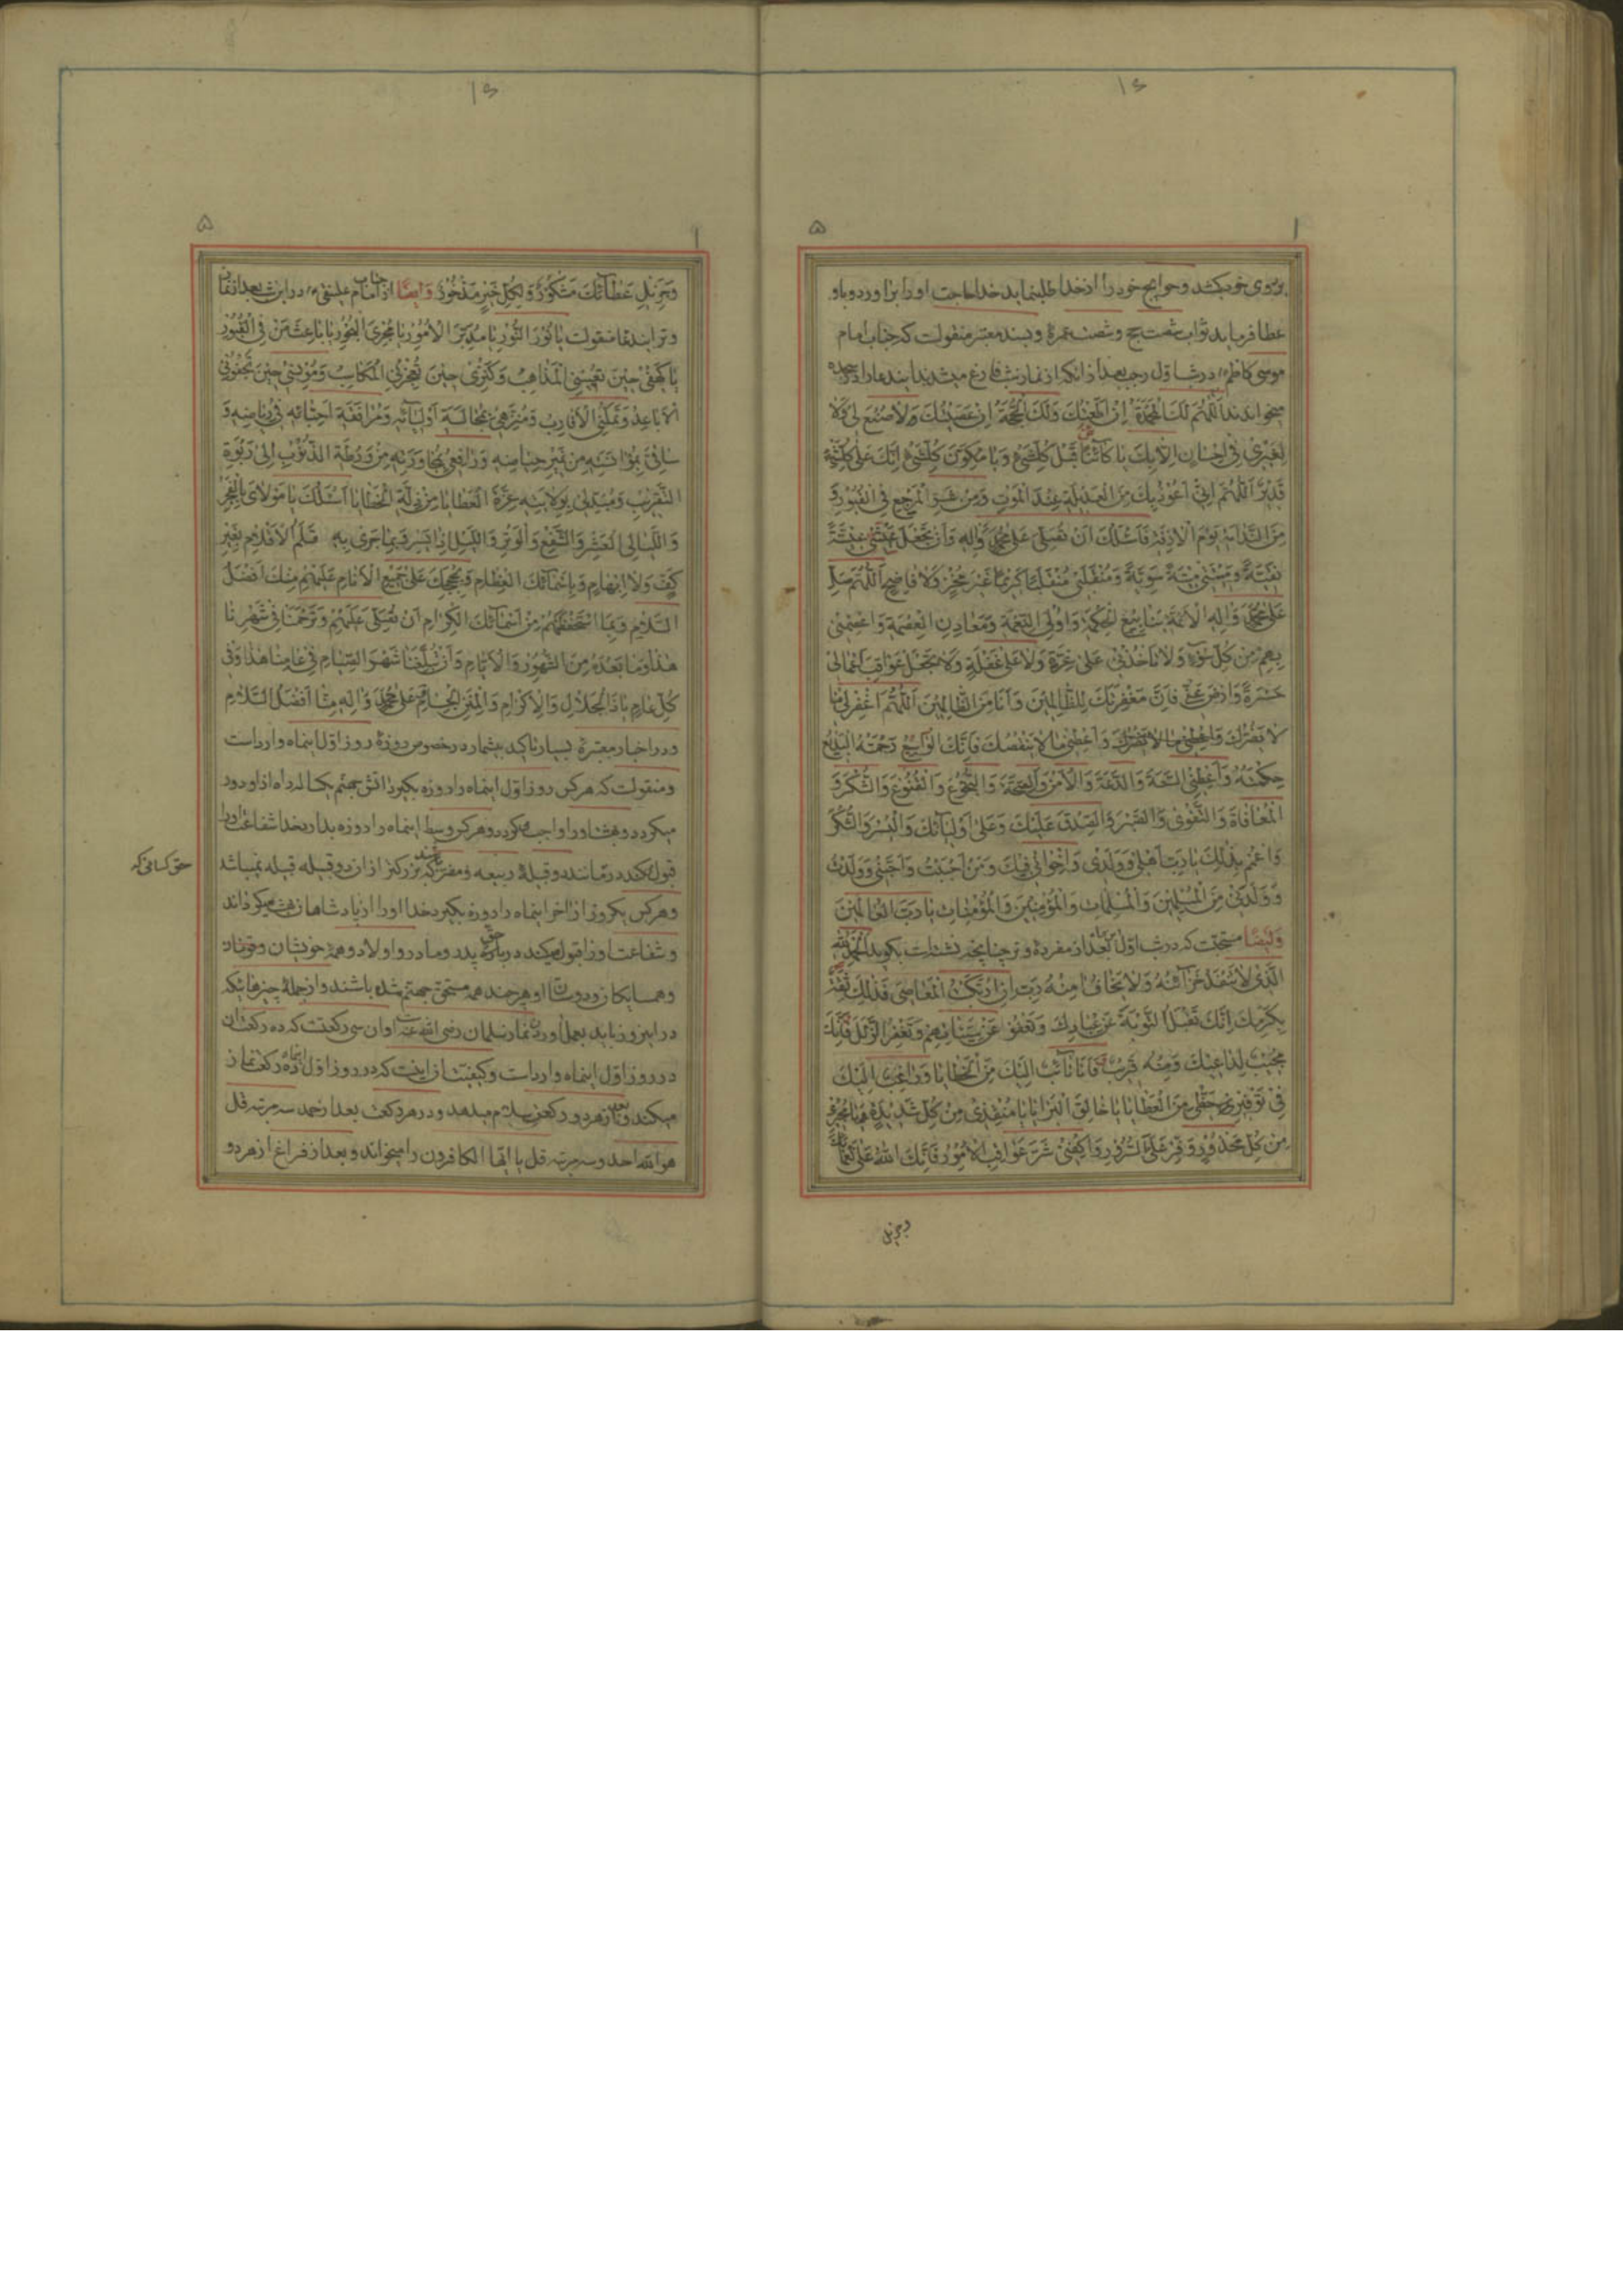 ۱۶
۱ ۵
بر روی خود بکشد و حوایج خود را از خدا طلب نماید خدا حاجت او را برآورد و باو
عطا فرماید ثواب شصت حج و شصت عمره و بسند معتبر منقولست که جناب امام
موسی کاظم در شب اول رجب بعد از آنکه از نماز شب فارغ میشدند این دعا را در سجده
میخواندند اَللّهُمَّ لَكَ الْمَحْمَدَةُ اِنْ اَطَعْتُكَ وَلَكَ الْحُجَّةُ اِنْ عَصَيْتُكَ لا صُنْعَ لي وَلا
لِغَيْري في اِحْسانٍ اِلّا بِكَ يا كائِناً قَبْلَ كُلِّشَيْءٍ وَيا مُكَوِّنَ كُلِّشَيْءٍ اِنَّكَ عَلى كُلِّشَيْءٍ
قَديرٌ اَللّهُمَّ اِنّي اَعُوذُ بِكَ مِنَ الْعَديلَةِ عِنْدَ الْمَوْتِ وَمِنْ شَرِّ الْمَرْجِعِ فِي الْقُبُورِ وَ
مِنَ النَّدامَةِ يَوْمَ الْازِفَةِ فَاَسْئَلُكَ اَنْ تُصَلِّيَ عَلى مُحَمَّدٍ وَالِهِ وَاَنْ تَجْعَلَ عَيْشي عيشَةً
نَقِيَّةً وَمَيْتَتي ميتَةً سَوِيَّةً وَمُنْقَلَبي مُنْقَلَباً كَريماً غَيْرَ مُخْزٍ وَلا فاضِحٍ اَللّهُمَّ صَلِّ
عَلى مُحَمَّدٍ وَالِهِ الْاَئِمَّةِ يَنابيعِ الْحِكْمَةِ وَاُولِي النِّعْمَةِ وَمَعادِنِ الْعِصْمَةِ وَاعْصِمْني
بِهِمْ مِنْ كُلِّ سُوءٍ وَلا تَأْخُذْني عَلى غِرَّةٍ وَلا عَلى غَفْلَةٍ وَلا تَجْعَلْ عَواقِبَ اَعْمالي
حَسْرَةً وَارْضَ عَنّي فَاِنَّ مَغْفِرَتَكَ لِلظّالِمينَ وَاَنَا مِنَ الظّالِمينَ اَللّهُمَّ اغْفِرْ لي ما
لا يَضُرُّكَ وَاَعْطِني ما لا يَنْقُصُكَ فَاِنَّكَ الْواسِعُ رَحْمَتُهُ الْبَديعُ
حِكْمَتُهُ وَاَعْطِنِي السَّعَةَ وَالدَّعَةَ وَالْاَمْنَ وَالصِّحَّةَ وَالْبُخُوعَ وَالْقُنُوعَ وَالشُّكْرَ وَ
الْمُعافاةَ وَالتَّقْوى وَالصَّبْرَ وَالصِّدْقَ عَلَيْكَ وَعَلى اَوْلِيائِكَ وَالْيُسْرَ وَالشُّكْرَ
وَاعْمُمْ بِذلِكَ يا رَبِّ اَهْلي وَوَلَدي وَاِخْواني فيكَ وَمَنْ اَحْبَبْتُ وَاَحَبَّني وَوَلَدْتُ
وَوَلَدَني مِنَ الْمُسْلِمينَ وَالْمُسْلِماتِ وَالْمُؤْمِنينَ وَالْمُؤْمِناتِ يا رَبَّ الْعالَمينَ
وَايضاً مستحبّت که در شب اول بعد از مفرده وتر چنانچه نشسته است بگوید اَلْحَمْدُ لِلّهِ
الَّذي لا تَنْفَدُ خَزائِنُهُ وَلا يَخافُ امِنُهُ رَبِّ اِنِ ارْتَكَبْتُ الْمَعاصِيَ فَذلِكَ ثِقَةٌ
بِكَرَمِكَ اِنَّكَ تَقْبَلُ التَّوْبَةَ عَنْ عِبادِكَ وَتَعْفُو عَنْ سَيِّئاتِهِمْ وَتَغْفِرُ الزَّلَلَ فَاِنَّكَ
مُجيبٌ لِداعيكَ وَمِنْهُ قَريبٌ فَاَنَا تائِبٌ اِلَيْكَ مِنَ الْخَطايا وَراغِبٌ اِلَيْكَ
في تَوْفيرِ حَظّي مِنَ الْعَطايا يا خالِقَ الْبَرايا يا مُنْقِذي مِنْ كُلِّ شَديدَةٍ يا مُجيري
مِنْ كُلِّ مَحْذُورٍ وَفِّرْ عَلَيَّ السُّرُورَ وَاكْفِني شَرَّ عَواقِبِ الْاُمُورِ فَاِنَّكَ اللهُ عَلى نَعْمائِكَ
وجزیل
۱۶
۱ ۵
وَجَزيلِ عَطائِكَ مَشْكُورٌ وَلِكُلِّ خَيْرٍ مَذْخُورٌ وَايضاً از جناب امام علینقی در این شب بعد از نماز
وتر ایندعا منقولست يا نُورَ النُّورِ يا مُدَبِّرَ الْاُمُورِ يا مُجْرِيَ الْبُحُورِ يا باعِثَ مَنْ فِي الْقُبُورِ
يا كَهْفي حينَ تُعْيينِي الْمَذاهِبُ وَكَنْزي حينَ تُعْجِزُنِي الْمَكاسِبُ وَمُونِسي حينَ تَجْفُوني
الْاَباعِدُ وَتَمَلُّنِي الْاَقارِبُ وَمُنَزِّهي بِمُجالَسَةِ اَوْلِيائِهِ وَمُرافَقَةِ اَحِبّائِهِ في رِياضِهِ وَ
ساقِيَّ بِمُؤانَسَتِهِ مِنْ نَميرِ حِياضِهِ وَرافِعي بِمُجاوَرَتِهِ مِنْ وَرْطَةِ الذُّنُوبِ اِلى رَبْوَةِ
التَّقْريبِ وَمُبَدِّلي بِوِلايَتِهِ عِزَّةَ الْعَطايا مِنْ ذِلَّةِ الْخَطايا اَسْئَلُكَ يا مَوْلايَ بِالْفَجْرِ
وَاللَّيالِي الْعَشْرِ وَالشَّفْعِ وَالْوَتْرِ وَاللَّيْلِ اِذا يَسْرِ وَبِما جَرى بِهِ قَلَمُ الْاَقْلامِ بِغَيْرِ
كَفٍّ وَلا اِبْهامٍ وَبِاَسْمائِكَ الْعِظامِ وَبِحُجَجِكَ عَلى جَميعِ الْاَنامِ عَلَيْهِمْ مِنْكَ اَفْضَلُ
السَّلامِ وَبِمَا اسْتَحْفَظْتَهُمْ مِنْ اَسْمائِكَ الْكِرامِ اَنْ تُصَلِّيَ عَلَيْهِمْ وَتَرْحَمَنا في شَهْرِنا
هذا وَما بَعْدَهُ مِنَ الشُّهُورِ وَالْاَيّامِ وَاَنْ تُبَلِّغَنا شَهْرَ الصِّيامِ في عامِنا هذا وَفي
كُلِّ عامٍ يا ذَا الْجَلالِ وَالْاِكْرامِ وَالْمِنَنِ الْجِسامِ وَعَلى مُحَمَّدٍ وَالِهِ مِنّا اَفْضَلُ السَّلامِ
و در اخبار معتبره بسیار تاکید بیشمار در خصوص روزه روز اول اینماه وارد است
و منقولست که هر کس روز اول اینماه را روزه بگیرد آتش جهنم یکساله راه از او دور
میگردد و بهشت او را واجب میگردد و هر کس وسط اینماه را روزه بدارد خدا شفاعت او را
قبول میکند در مانند دو قبیله ربیعه و مضر که بزرگتر از آن دو قبیله قبیله نمیباشد
حق کسانی که
و هر کس یکروز از آخر اینماه را روزه بگیرد خدا او را از پادشاهان بهشت میگرداند
و شفاعت او را قبول میکند در باره حق پدر و مادر و اولاد و همه خویشان و قوم او
و همسایکان و دوستان او هر چند همه مستحق جهنم شده باشند و از جمله چیزهائیکه
در این روز باید بعمل آورد نماز سلمان رضی الله عنه است و آن سی رکعتست که ده رکعت آن
در روز اول اینماه وارد است و کیفیتش آنست که در روز اول اینماه ده رکعت نماز
میکند و بعد از هر دو رکعتی سلام میدهد و در هر رکعت بعد از حمد سه مرتبه قل
هو الله احد و سه مرتبه قل یا ایها الکافرون را میخواند و بعد از فراغ از هر دو